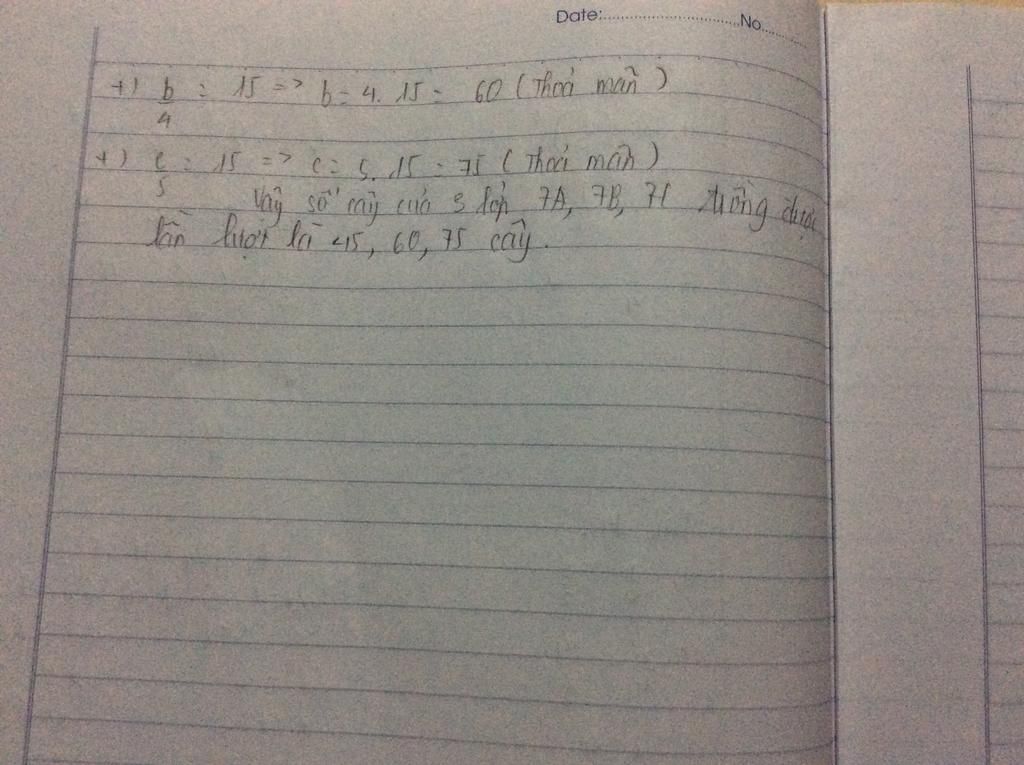 Date:..............................No..........
+) b/4 = 15 => b = 4. 15 = 60 (Thoả mãn)
+) c/5 = 15 => c = 5. 15 = 75 (Thoả mãn)
Vậy số cây của 3 lớp 7A, 7B, 7C trồng được
lần lượt là 45, 60, 75 cây.